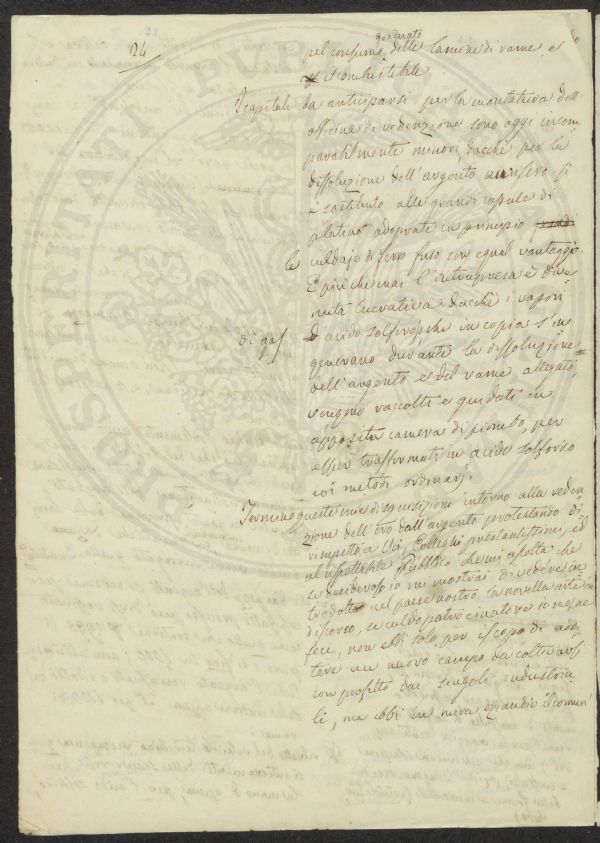 24
graduato
pel consumo delle lamine di rame, e
il combustibile
I capitali da anticiparsi per la montatura dell'
officina di redenzione sono oggi incom
parabilmente minori, dacchè per la
dissoluzione dell'argento aurifero si
è sostituito alle grandi capsule di
platino adoprate in principio
le caldaje di ferro fuso con egual vantaggio.
E più che mai l'intrapresa è dive
nuta lucrativa dacchè i vapori
di gas acido solforoso che in copia s'in
generano durante la dissoluzione
dell'argento e del rame allegato,
vengono raccolti e guidati in
apposita camera di piombo, per
esser trasformati in acido solforico
coi metodi ordinarj.
Termino queste mie disquisizioni intorno alla reden
zione dell'oro dall'argento protestando di
rimpetto a Voi, Colleghi prestantissimi, ed
al rispettabile Pubblico che mi ascolta che
se desideroso io mi mostrai di vedere in
trodotta nel paese nostro la novella arte in
discorso, se caldo patrocinatore io me ne
feci, non ebbi solo per iscopo di addi
tare un nuovo campo da coltivarsi
con profitto dai singoli industria
li, ma ebbi in mira eziandio il comun